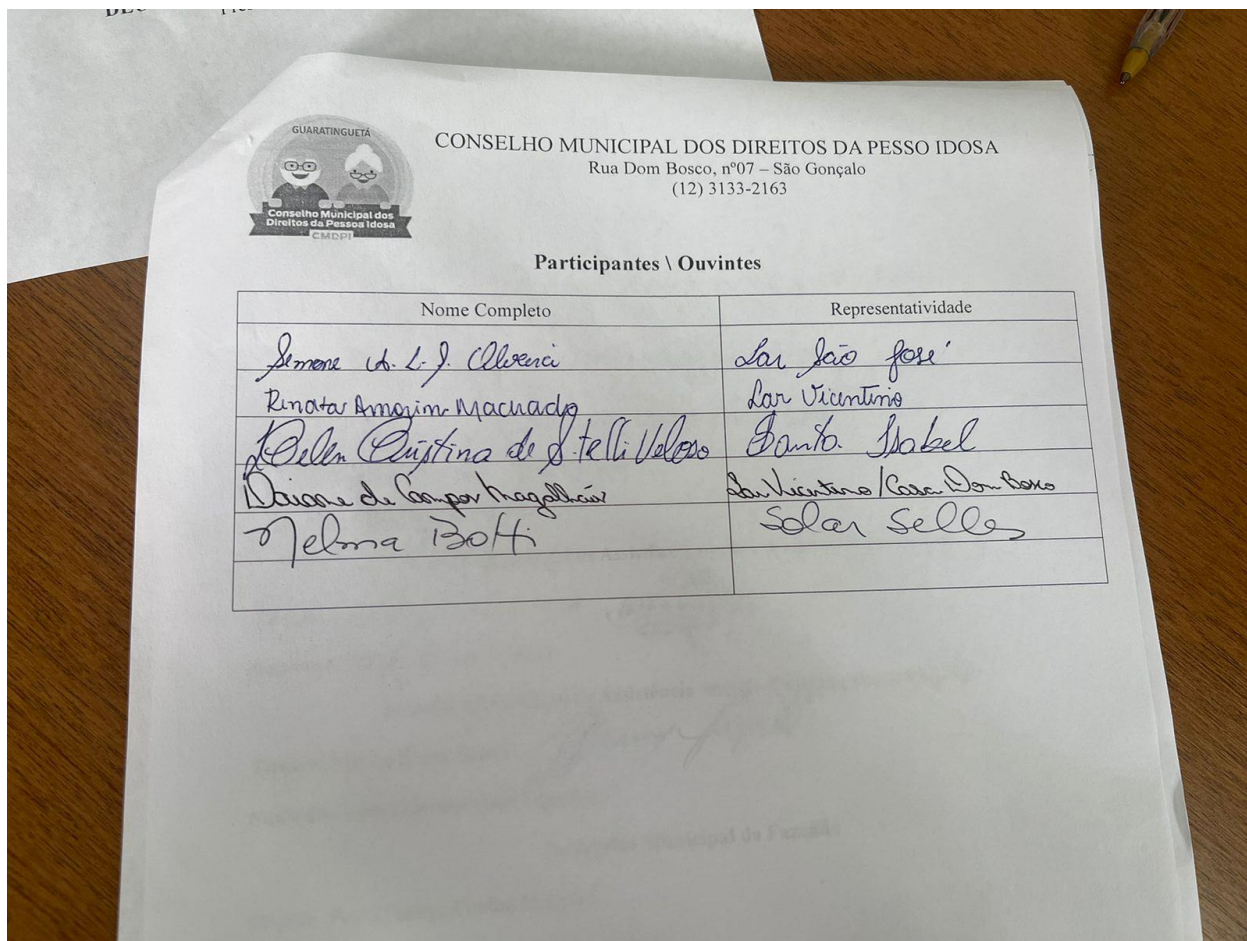 GUARATINGUETÁ
Conselho Municipal dos
Direitos da Pessoa Idosa
CMDPI
CONSELHO MUNICIPAL DOS DIREITOS DA PESSO IDOSA
Rua Dom Bosco, nº07 – São Gonçalo
(12) 3133-2163
Participantes \ Ouvintes
Nome Completo Representatividade
Simone A. L. J. Oliveira Lar São José
Renata Amorim Machado Lar Vicentino
Cristina de Veloso Santa Isabel
Daiane de Campos Magalhães Lar Vicentino/Casa Dom Bosco
Nelma Botti Solar Selles